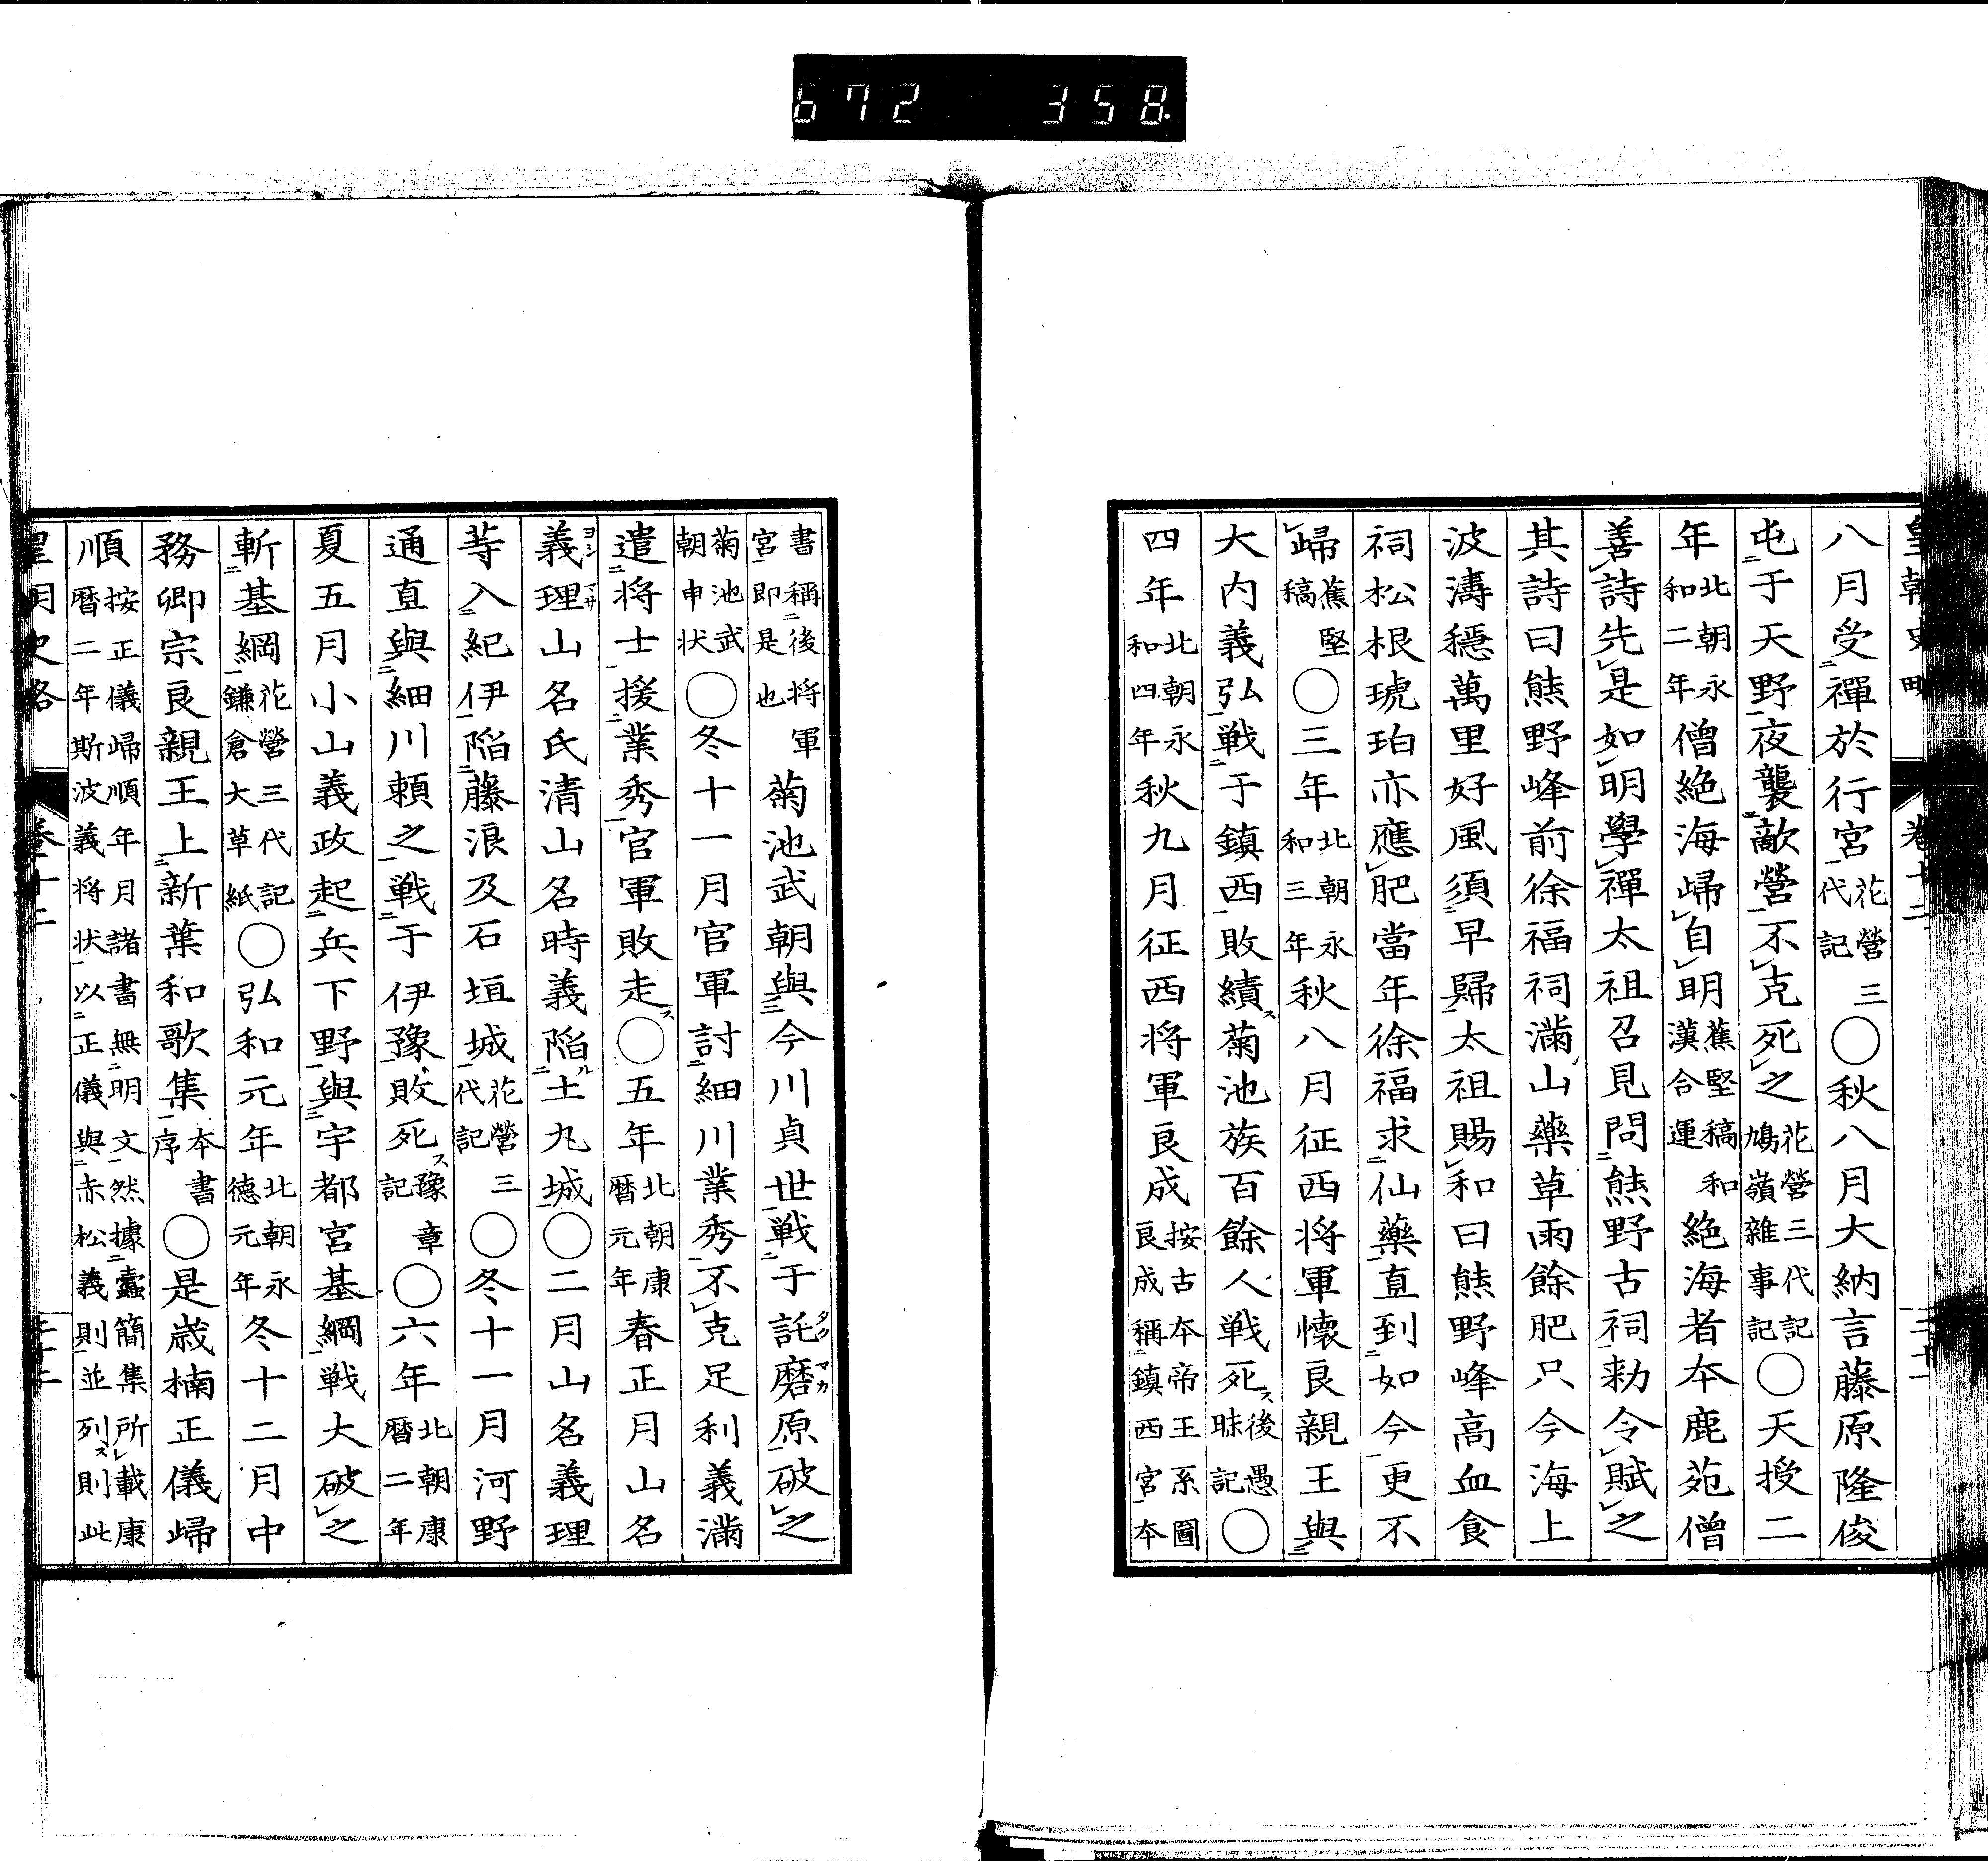 672 358
皇朝史略 卷十二 二十一
八月受禪於行宮花營三代記〇秋八月大納言藤原隆俊
屯于天野夜襲敵營不克死之花營三代記鳩嶺雜事記〇天授二
年北朝永和二年僧絶海歸自明蕉堅稿和漢合運絶海者本鹿苑僧
善詩先是如明學禪太祖召見問熊野古祠勑令賦之
其詩曰熊野峰前徐福祠滿山藥草雨餘肥只今海上
波濤穩萬里好風須早歸太祖賜和曰熊野峰高血食
祠松根琥珀亦應肥當年徐福求仙藥直到如今更不
歸蕉堅稿〇三年北朝永和三年秋八月征西将軍懷良親王與
大内義弘戰于鎮西敗績ス菊池族百餘人戰死ス後愚昧記〇
四年北朝永和四年秋九月征西将軍良成按古本帝王系圖良成稱鎮西宮本
書稱後将軍宮即是也菊池武朝與今川貞世戰于託磨原タクマカ破之
菊池武朝申状〇冬十一月官軍討細川業秀不克足利義滿
遣将士援業秀官軍敗走ス〇五年北朝康暦元年春正月山名
義理ヨシマサ山名氏清山名時義陷ル土丸城〇二月山名義理
等入紀伊陷藤浪及石垣城花營三代記〇冬十一月河野
通直與細川頼之戰于伊豫敗死ス豫章記〇六年北朝康暦二年
夏五月小山義政起兵下野與宇都宮基綱戰大破之
斬基綱花營三代記鎌倉大草紙〇弘和元年北朝永德元年冬十二月中
務卿宗良親王上新葉和歌集本書序〇是歳楠正儀歸
順按正儀歸順年月諸書無明文然據蠧簡集所載康暦二年斯波義将状以正儀與赤松義則並列ス則此
皇朝史略 卷十二 二十二